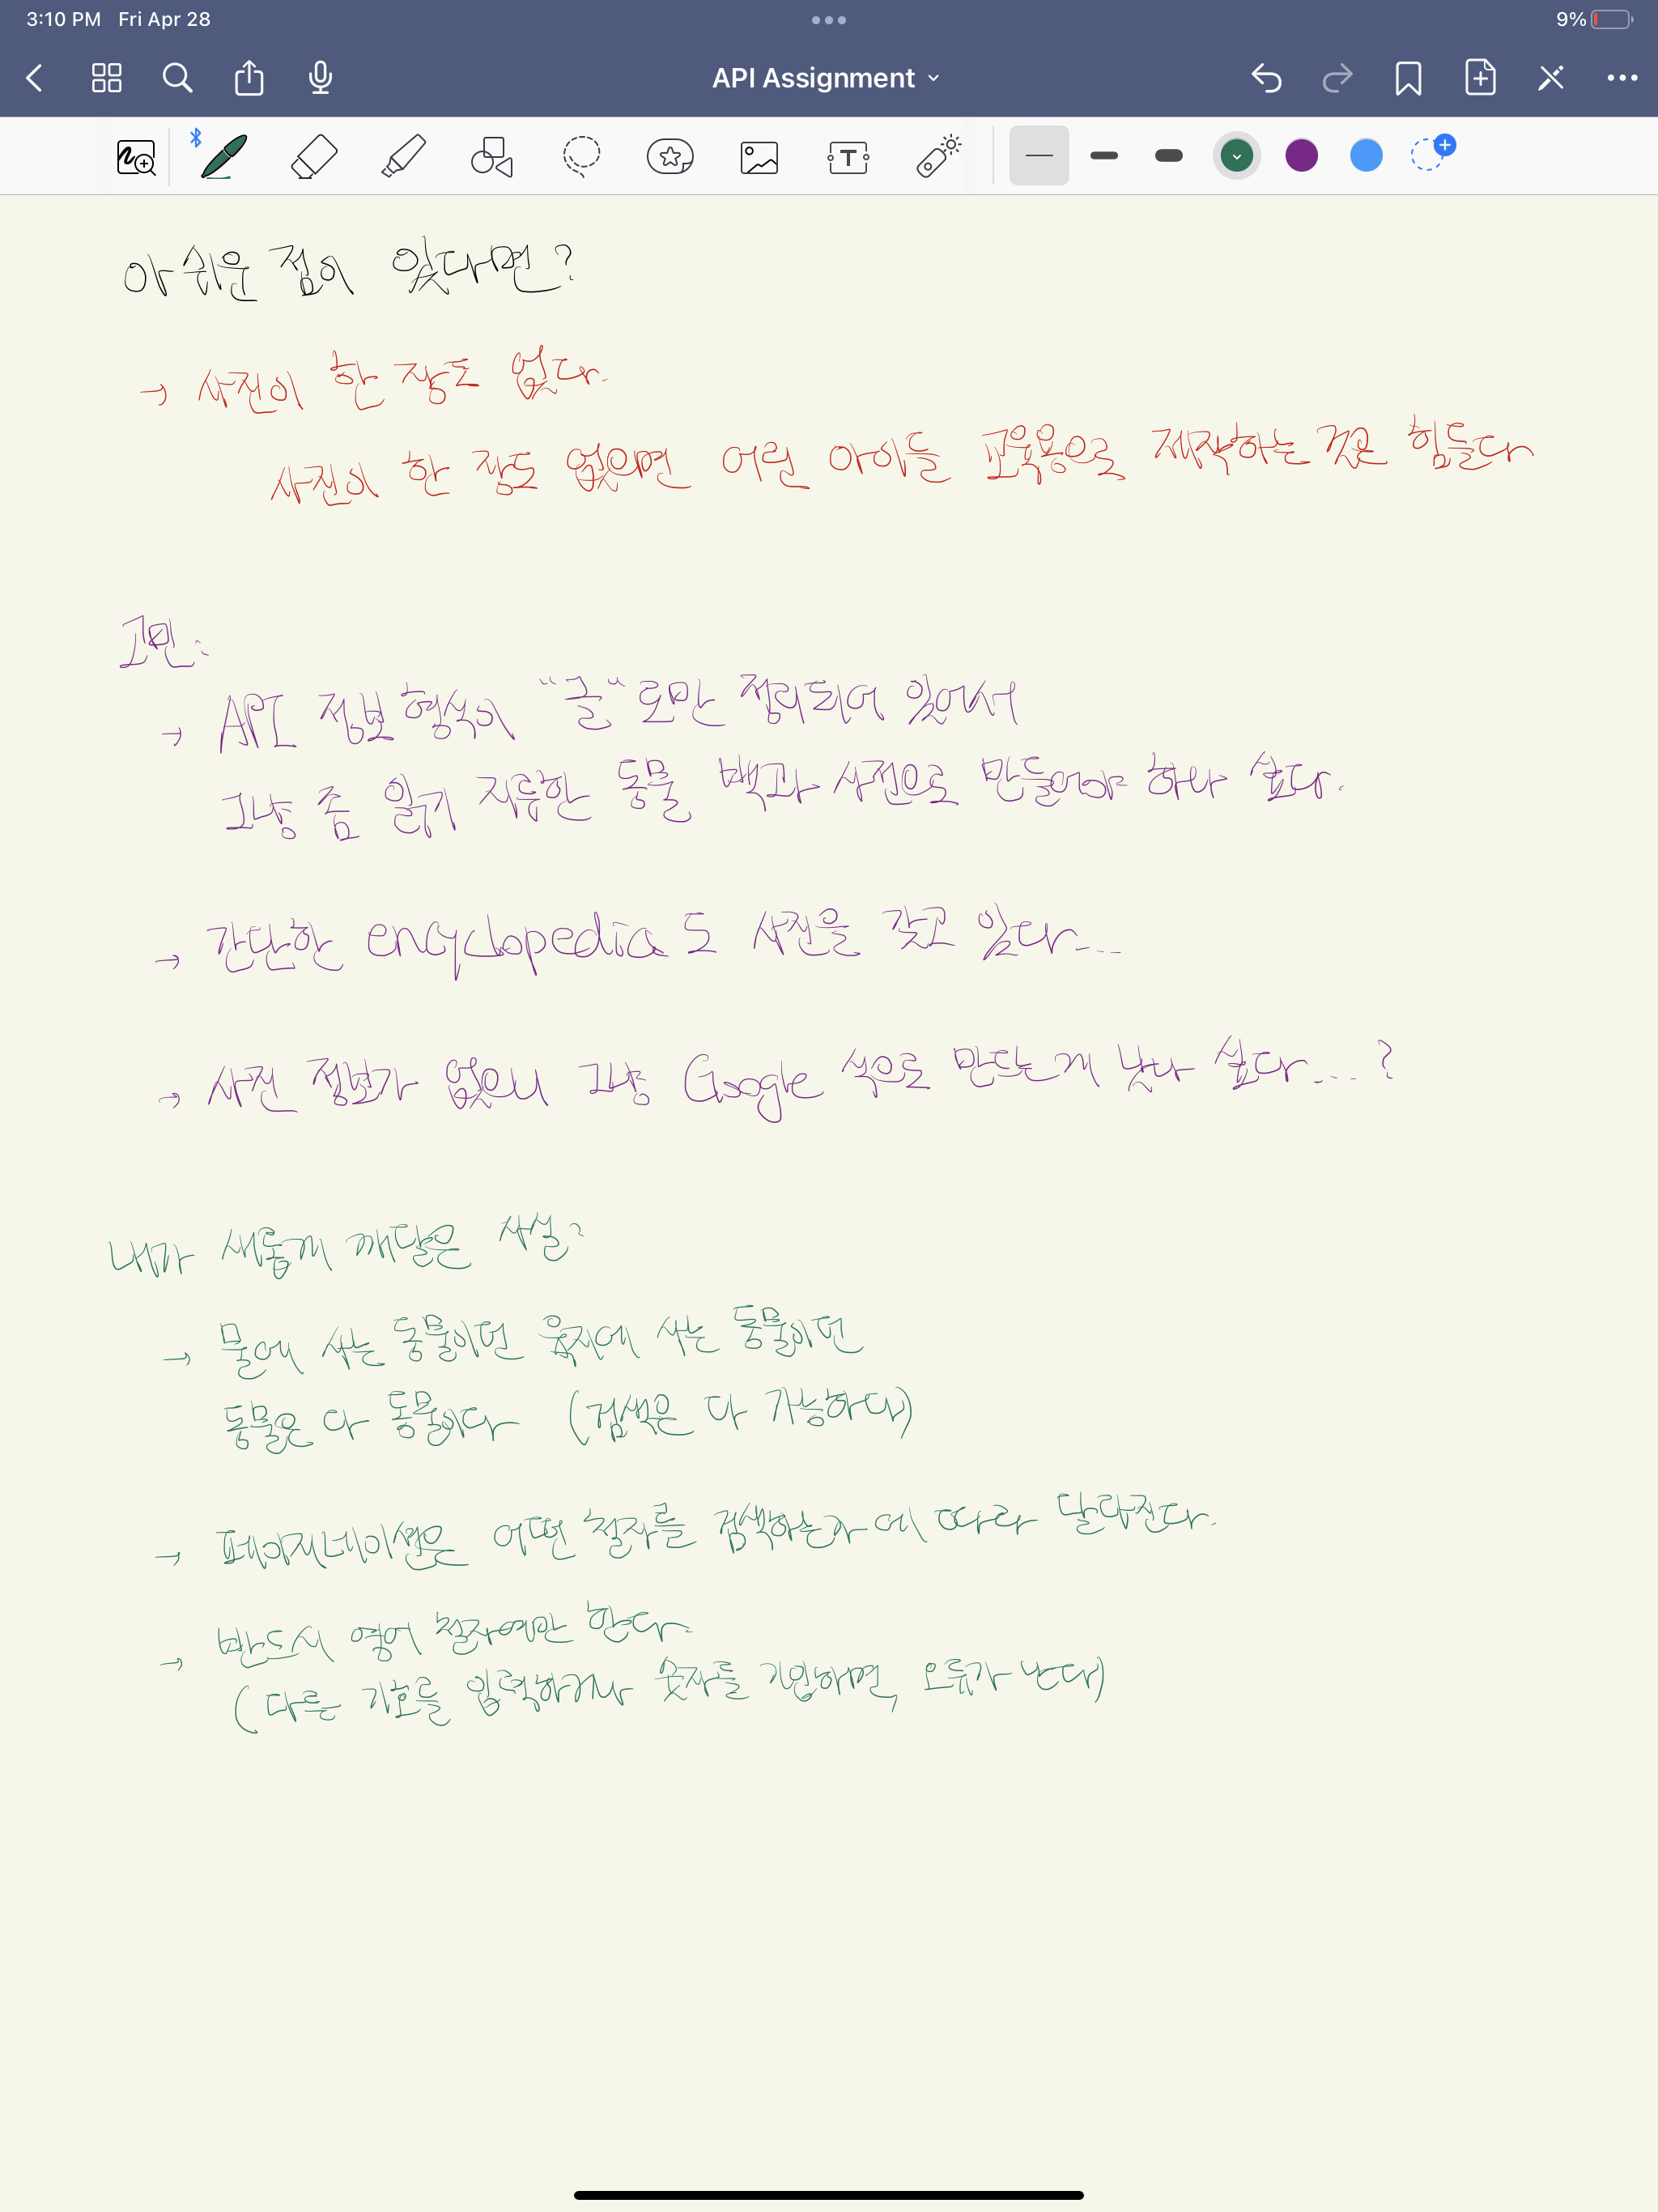 3:10 PM Fri Apr 28
9%
API Assignment
T
아쉬운 점이 있다면?
→ 사진이 한 장도 없다.
사진이 한 장도 없으면 어린 아이들 교육용으로 제작하는 것은 힘들다
고민:
→ API 정보 형식이 "글"로만 정리되어 있어서
그냥 좀 읽기 지루한 동물 백과 사전으로 만들어야 하나 싶다.
→ 간단한 encyclopedia도 사진을 갖고 있다...
→ 사진 정보가 없으니 그냥 Google 식으로 만드는게 낫나 싶다....?
내가 새롭게 깨달은 사실:
→ 물에 사는 동물이던 육지에 사는 동물이던
동물은 다 동물이다 (검색은 다 가능하다)
→ 페이지네이션은 어떤 철자를 검색하는가에 따라 달라진다.
→ 반드시 영어 철자여만 한다.
(다른 기호를 입력하거나 숫자를 기입하면, 오류가 난다)